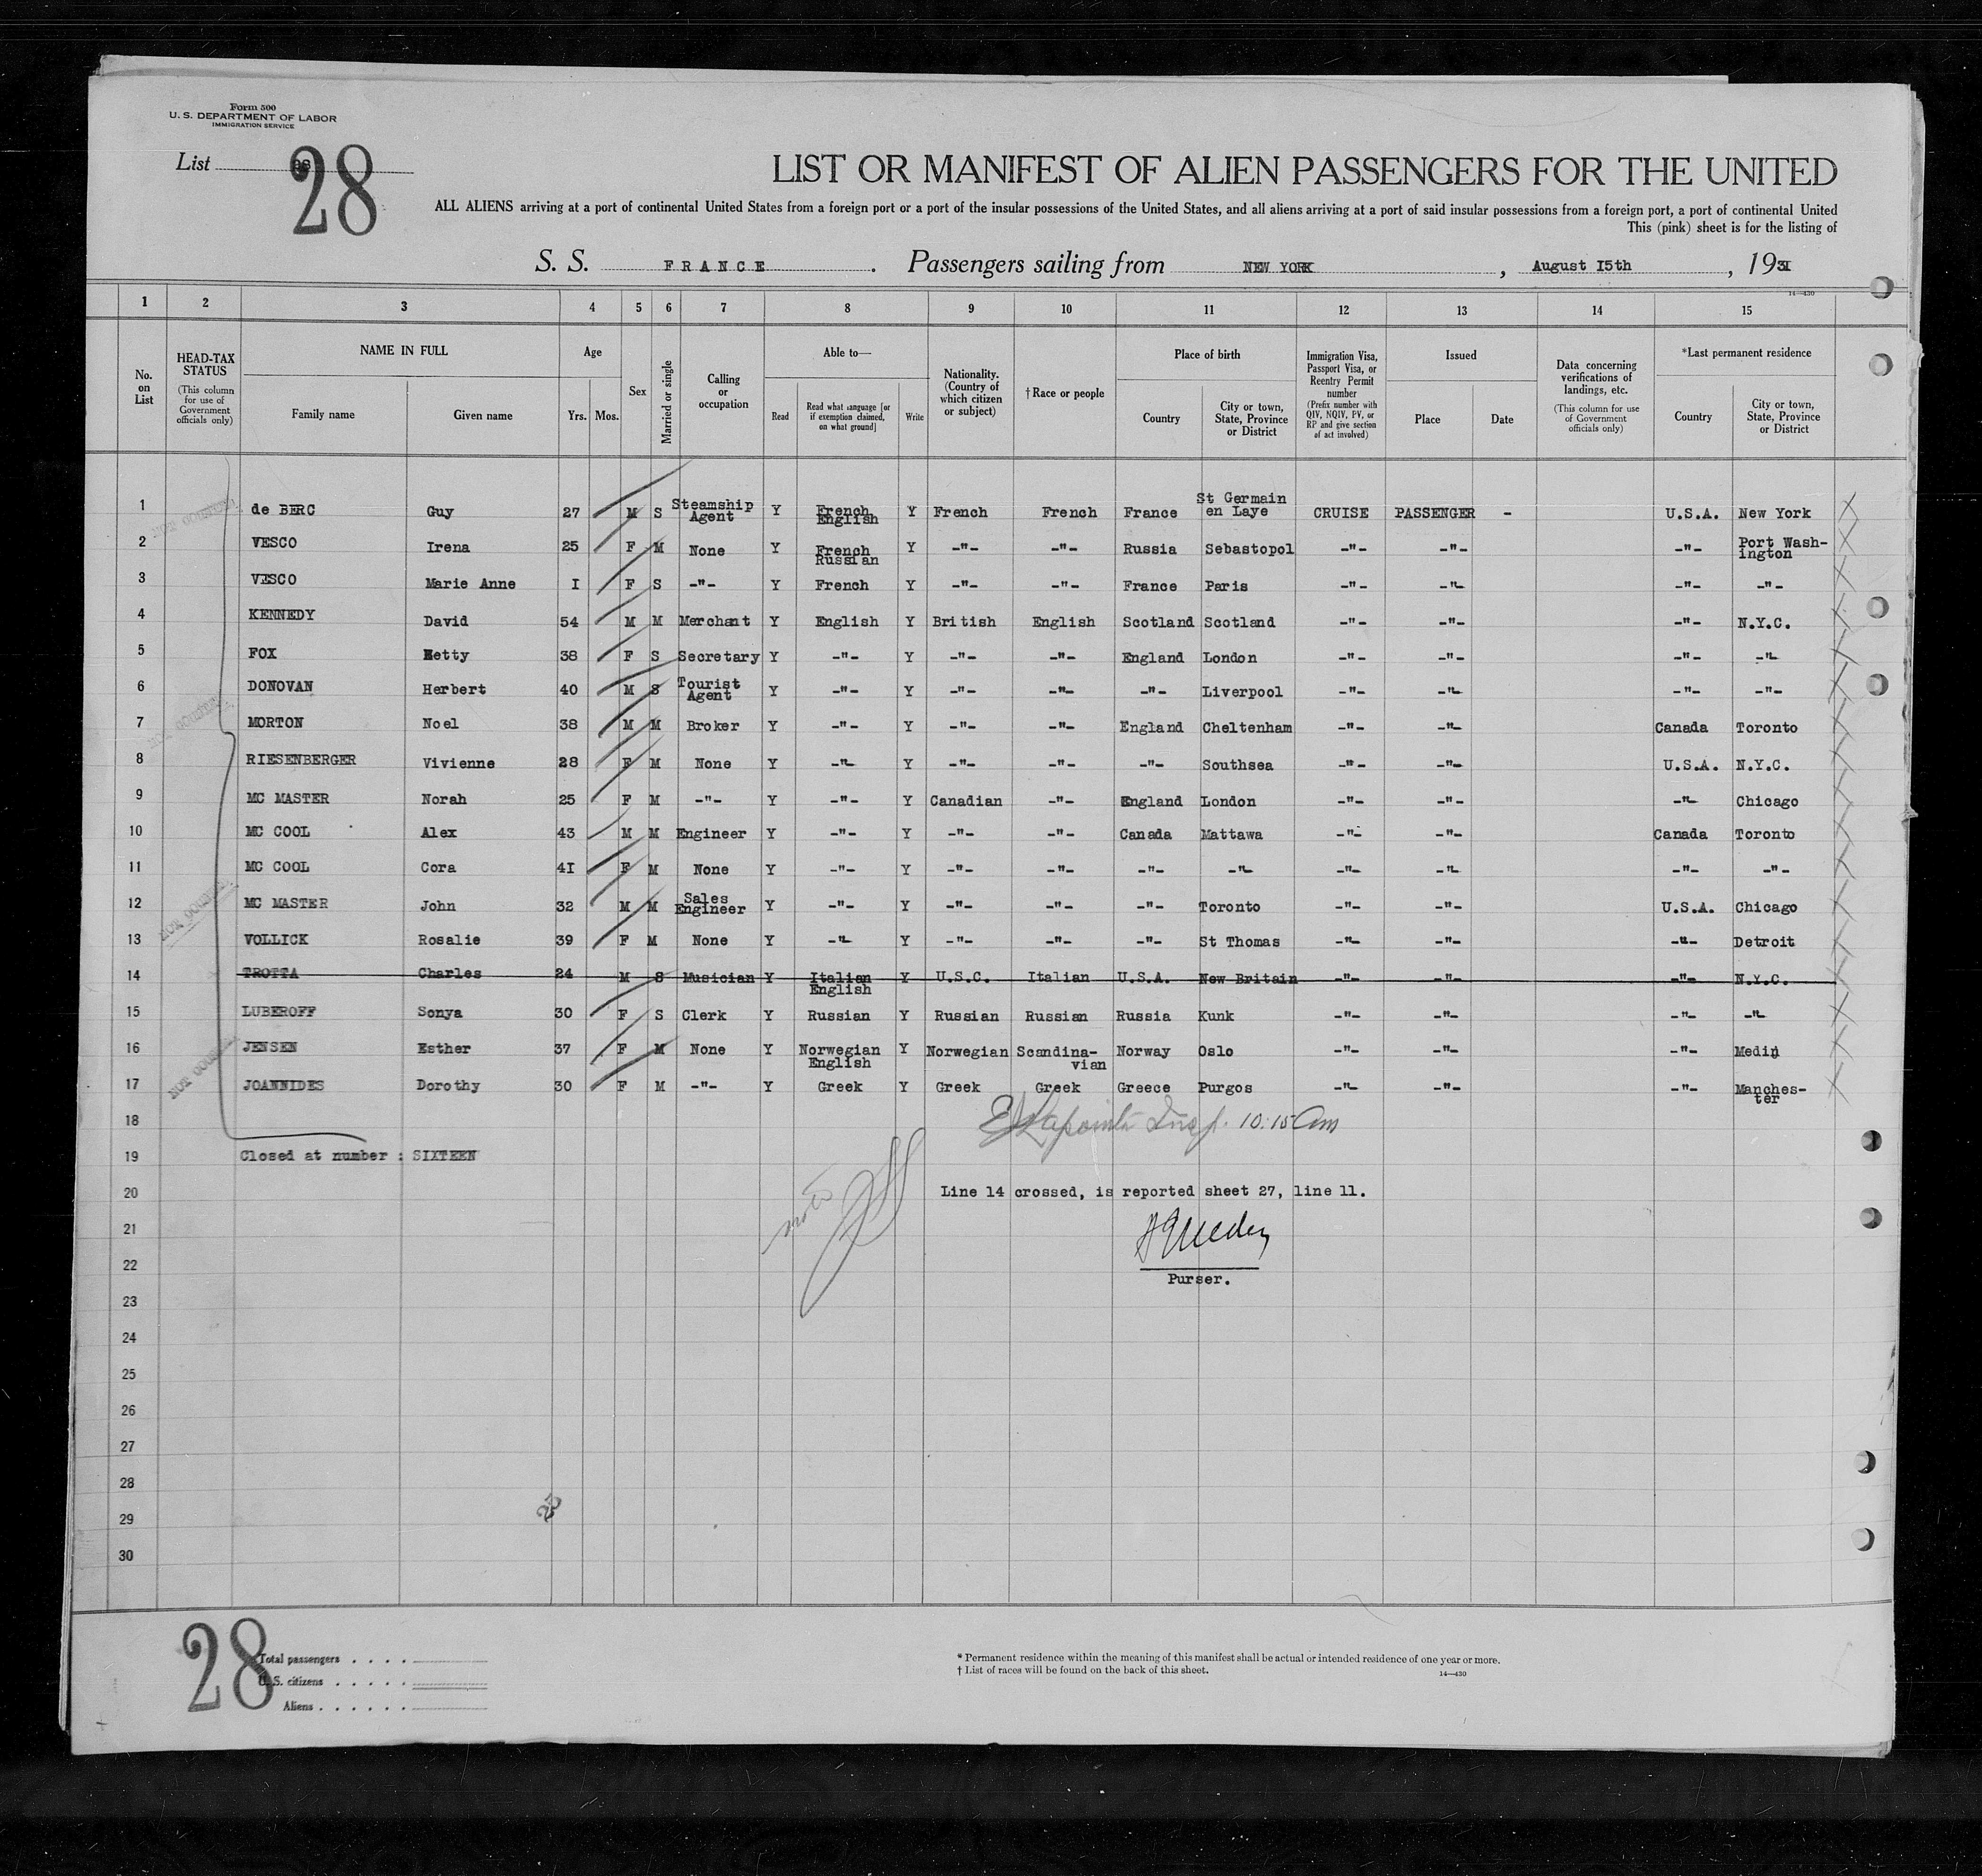 Form 500
U. S. DEPARTMENT OF LABOR
IMMIGRATION SERVICE
List 28
28
LIST OR MANIFEST OF ALIEN PASSENGERS FOR THE UNITED
ALL ALIENS arriving at a port of continental United States from a foreign port or a port of the insular possessions of the United States, and all aliens arriving at a port of said insular possessions from a foreign port, a port of continental United
This (pink) sheet is for the listing of
S. S. FRANCE. Passengers sailing from NEW YORK, August I5th, 1931
14—430
1 2 3 4 5 6 7 8 9 10 11 12 13 14 15
No. on List
HEAD-TAX STATUS (This column for use of Government officials only)
NAME IN FULL Family name Given name
Age Yrs. Mos.
Sex
Married or single
Calling or occupation
Able to— Read Read what language [or if exemption claimed, on what ground] Write
Nationality. (Country of which citizen or subject)
† Race or people
Place of birth Country City or town, State, Province or District
Immigration Visa, Passport Visa, or Reentry Permit number (Prefix number with QIV, NQIV, PV, or RP and give section of act involved)
Issued Place Date
Data concerning verifications of landings, etc. (This column for use of Government officials only)
*Last permanent residence Country City or town, State, Province or District
1 de BERC Guy 27 M S Steamship Agent Y French English Y French French France St Germain en Laye CRUISE PASSENGER - U.S.A. New York
2 VESCO Irena 25 F M None Y French Russian Y -"- -"- Russia Sebastopol -"- -"- -"- Port Wash-ington
3 VESCO Marie Anne I F S -"- Y French Y -"- -"- France Paris -"- -"- -"- -"-
4 KENNEDY David 54 M M Merchant Y English Y British English Scotland Scotland -"- -"- -"- N.Y.C.
5 FOX Hetty 38 F S Secretary Y -"- Y -"- -"- England London -"- -"- -"- -"-
6 DONOVAN Herbert 40 M S Tourist Agent Y -"- Y -"- -"- -"- Liverpool -"- -"- -"- -"-
7 MORTON Noel 38 M M Broker Y -"- Y -"- -"- England Cheltenham -"- -"- Canada Toronto
8 RIESENBERGER Vivienne 28 F M None Y -"- Y -"- -"- -"- Southsea -"- -"- U.S.A. N.Y.C.
9 MC MASTER Norah 25 F M -"- Y -"- Y Canadian -"- England London -"- -"- -"- Chicago
10 MC COOL Alex 43 M M Engineer Y -"- Y -"- -"- Canada Mattawa -"- -"- Canada Toronto
11 MC COOL Cora 4I F M None Y -"- Y -"- -"- -"- -"- -"- -"- -"- -"-
12 MC MASTER John 32 M M Sales Engineer Y -"- Y -"- -"- -"- Toronto -"- -"- U.S.A. Chicago
13 VOLLICK Rosalie 39 F M None Y -"- Y -"- -"- -"- St Thomas -"- -"- -"- Detroit
14 TROTTA Charles 24 M S Musician Y Italian English Y U.S.C. Italian U.S.A. New Britain -"- -"- -"- N.Y.C.
15 LUBEROFF Sonya 30 F S Clerk Y Russian Y Russian Russian Russia Kunk -"- -"- -"- -"-
16 JENSEN Esther 37 F M None Y Norwegian English Y Norwegian Scandina-vian Norway Oslo -"- -"- -"-
17 JOANNIDES Dorothy 30 F M -"- Y Greek Y Greek Greek Greece Purgos -"- -"- -"- Manches-ter
18 Insp. 10:15 am
19 Closed at number : SIXTEEN
20 Line 14 crossed, is reported sheet 27, line 11.
21
22
Purser.
23
24
25
26
27
28
29
30
28
Total passengers . . . .
U.S. citizens . . . . .
Aliens . . . . . .
* Permanent residence within the meaning of this manifest shall be actual or intended residence of one year or more.
† List of races will be found on the back of this sheet.
14—430